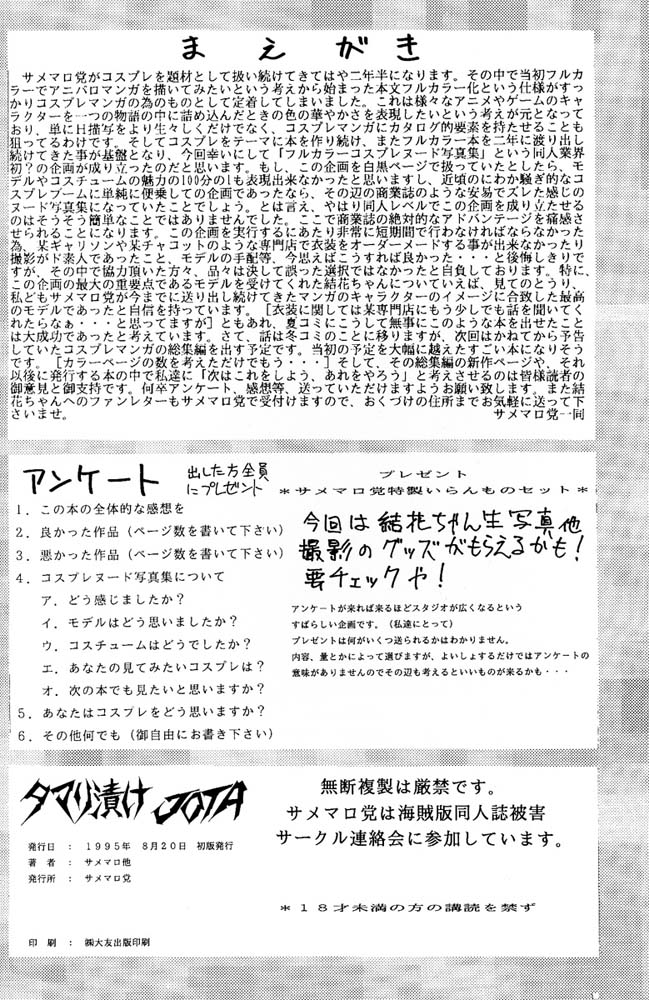 まえがき
サメマロ党がコスプレを題材として扱い続けてきてはや二年半になります。その中で当初フルカ
ラーでアニパロマンガを描いてみたいという考えから始まった本文フルカラー化という仕様がすっ
かりコスプレマンガの為のものとして定着してしまいました。これは様々なアニメやゲームのキャ
ラクターを一つの物語の中に詰め込んだときの色の華やかさを表現したいという考えが元となって
おり、単にH描写をより生々しくだけでなく、コスプレマンガにカタログ的要素を持たせることも
狙ってるわけです。そしてコスプレをテーマに本を作り続け、またフルカラー本を二年に渡り出し
続けてきた事が基盤となり、今回幸いにして「フルカラーコスプレヌード写真集」という同人業界
初？の企画が成り立ったのだと思います。もし、この企画を白黒ページで扱っていたとしたら、モ
デルやコスチュームの魅力の100分の1も表現出来なかったと思いますし、近頃のにわか騒ぎ的なコ
スプレブームに単純に便乗しての企画であったなら、その辺の商業誌のような安易でズレた感じの
ヌード写真集になっていたことでしょう。とは言え、やはり同人レベルでこの企画を成り立たせる
のはそうそう簡単なことではありませんでした。ここで商業誌の絶対的なアドバンテージを痛感さ
せられることになります。この企画を実行するにあたり非常に短期間で行わなければならなかった
為、某ギャリソンや某チャコットのような専門店で衣装をオーダーメードする事が出来なかったり
撮影がド素人であったこと、モデルの手配等、今思えばこうすれば良かった・・・と後悔しきりで
すが、その中で協力頂いた方々、品々は決して誤った選択ではなかったと自負しております。特に、
この企画の最大の重要点であるモデルを受けてくれた結花ちゃんについていえば、見てのとうり、
私どもサメマロ党が今までに送り出し続けてきたマンガのキャラクターのイメージに合致した最高
のモデルであったと自信を持っています。［衣装に関しては某専門店にもう少しでも話を聞いてく
れたらなぁ・・・と思ってますが］ともあれ、夏コミにこうして無事にこのような本を出せたこと
は大成功であったと考えています。さて、話は冬コミのことに移りますが、次回はかねてから予告
していたコスプレマンガの総集編を出す予定です。当初の予定を大幅に越えたすごい本になりそう
です。［カラーページの数を考えただけでもう・・・］そして、その総集編の新作ページや、それ
以後に発行する本の中で私達に「次はこれをしよう、あれをやろう」と考えさせるのは皆様読者の
御意見と御支持です。何卒アンケート、感想等、送っていただけますようお願い致します。また結
花ちゃんへのファンレターもサメマロ党で受付けますので、おくづけの住所までお気軽に送って下
さいませ。
サメマロ党一同
アンケート
出した方全員
にプレゼント
1．この本の全体的な感想を
2．良かった作品（ページ数を書いて下さい）
3．悪かった作品（ページ数を書いて下さい）
4．コスプレヌード写真集について
ア．どう感じましたか？
イ．モデルはどう思いましたか？
ウ．コスチュームはどうでしたか？
エ．あなたの見てみたいコスプレは？
オ．次の本でも見たいと思いますか？
5．あなたはコスプレをどう思いますか？
6．その他何でも（御自由にお書き下さい）
プレゼント
＊サメマロ党特製いらんものセット＊
今回は結花ちゃん生写真他
撮影のグッズがもらえるかも！
要チェックや！
アンケートが来れば来るほどスタジオが広くなるという
すばらしい企画です。（私達にとって）
プレゼントは何がいくつ送られるかはわかりません。
内容、量とかによって選びますが、よいしょするだけではアンケートの
意味がありませんのでその辺も考えるといいものが来るかも・・・
タマリ漬け JOTA
発行日 ： 1995年 8月20日 初版発行
著 者 ： サメマロ他
発行所 ： サメマロ党
印 刷 ： ㈱大友出版印刷
無断複製は厳禁です。
サメマロ党は海賊版同人誌被害
サークル連絡会に参加しています。
＊18才未満の方の講読を禁ず